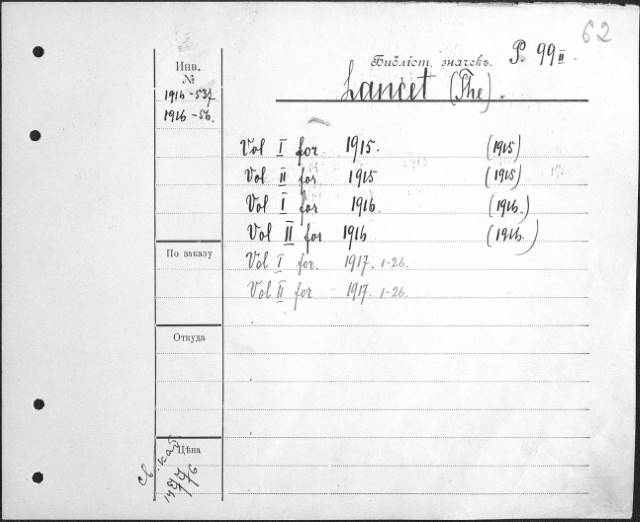 62
Библіот. значекъ. P. 99 II.
Lancet (The).
Инв.
№
1916-537
1916-56.
Vol I for 1915. (1915)
Vol II for 1915 (1915)
Vol I for 1916. (1916.)
Vol II for 1916 (1916.)
Vol I for. 1917. 1-26.
Vol II for - 1917. 1-26.
По заказу
Откуда
Цѣна